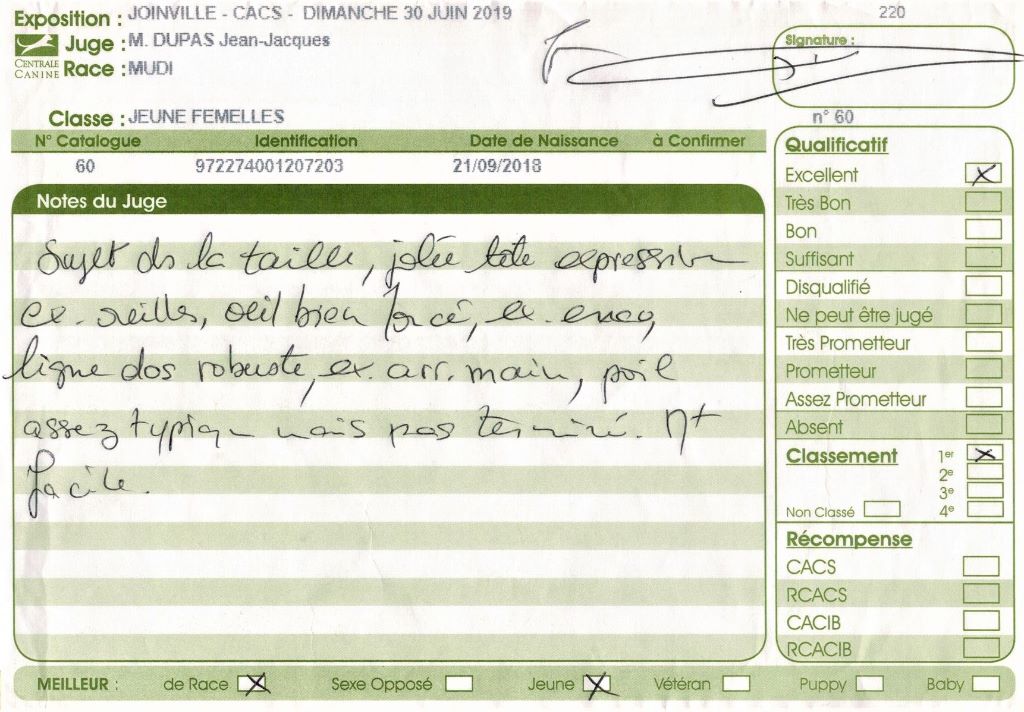 Exposition : JOINVILLE - CACS - DIMANCHE 30 JUIN 2019
220
Juge : M. DUPAS Jean-Jacques
Signature :
CENTRALE
CANINE
Race : MUDI
Classe : JEUNE FEMELLES
n° 60
N° Catalogue Identification Date de Naissance à Confirmer
60 972274001207203 21/09/2018
Notes du Juge
Sujet ds la taille, jolie tête expression
ex. oreilles, oeil bien foncé, ex. enco,
ligne dos robuste, ex. arr. main, poil
assez typique mais pas terminé. mt
facile.
Qualificatif
Excellent X
Très Bon
Bon
Suffisant
Disqualifié
Ne peut être jugé
Très Prometteur
Prometteur
Assez Prometteur
Absent
Classement 1er X
2e
3e
Non Classé 4e
Récompense
CACS
RCACS
CACIB
RCACIB
MEILLEUR : de Race X Sexe Opposé Jeune X Vétéran Puppy Baby